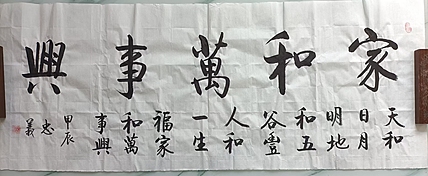 家和萬事興
天和
日月
明地
和五
谷豐
人和
一生
福家
和萬
事興
甲辰
忠義